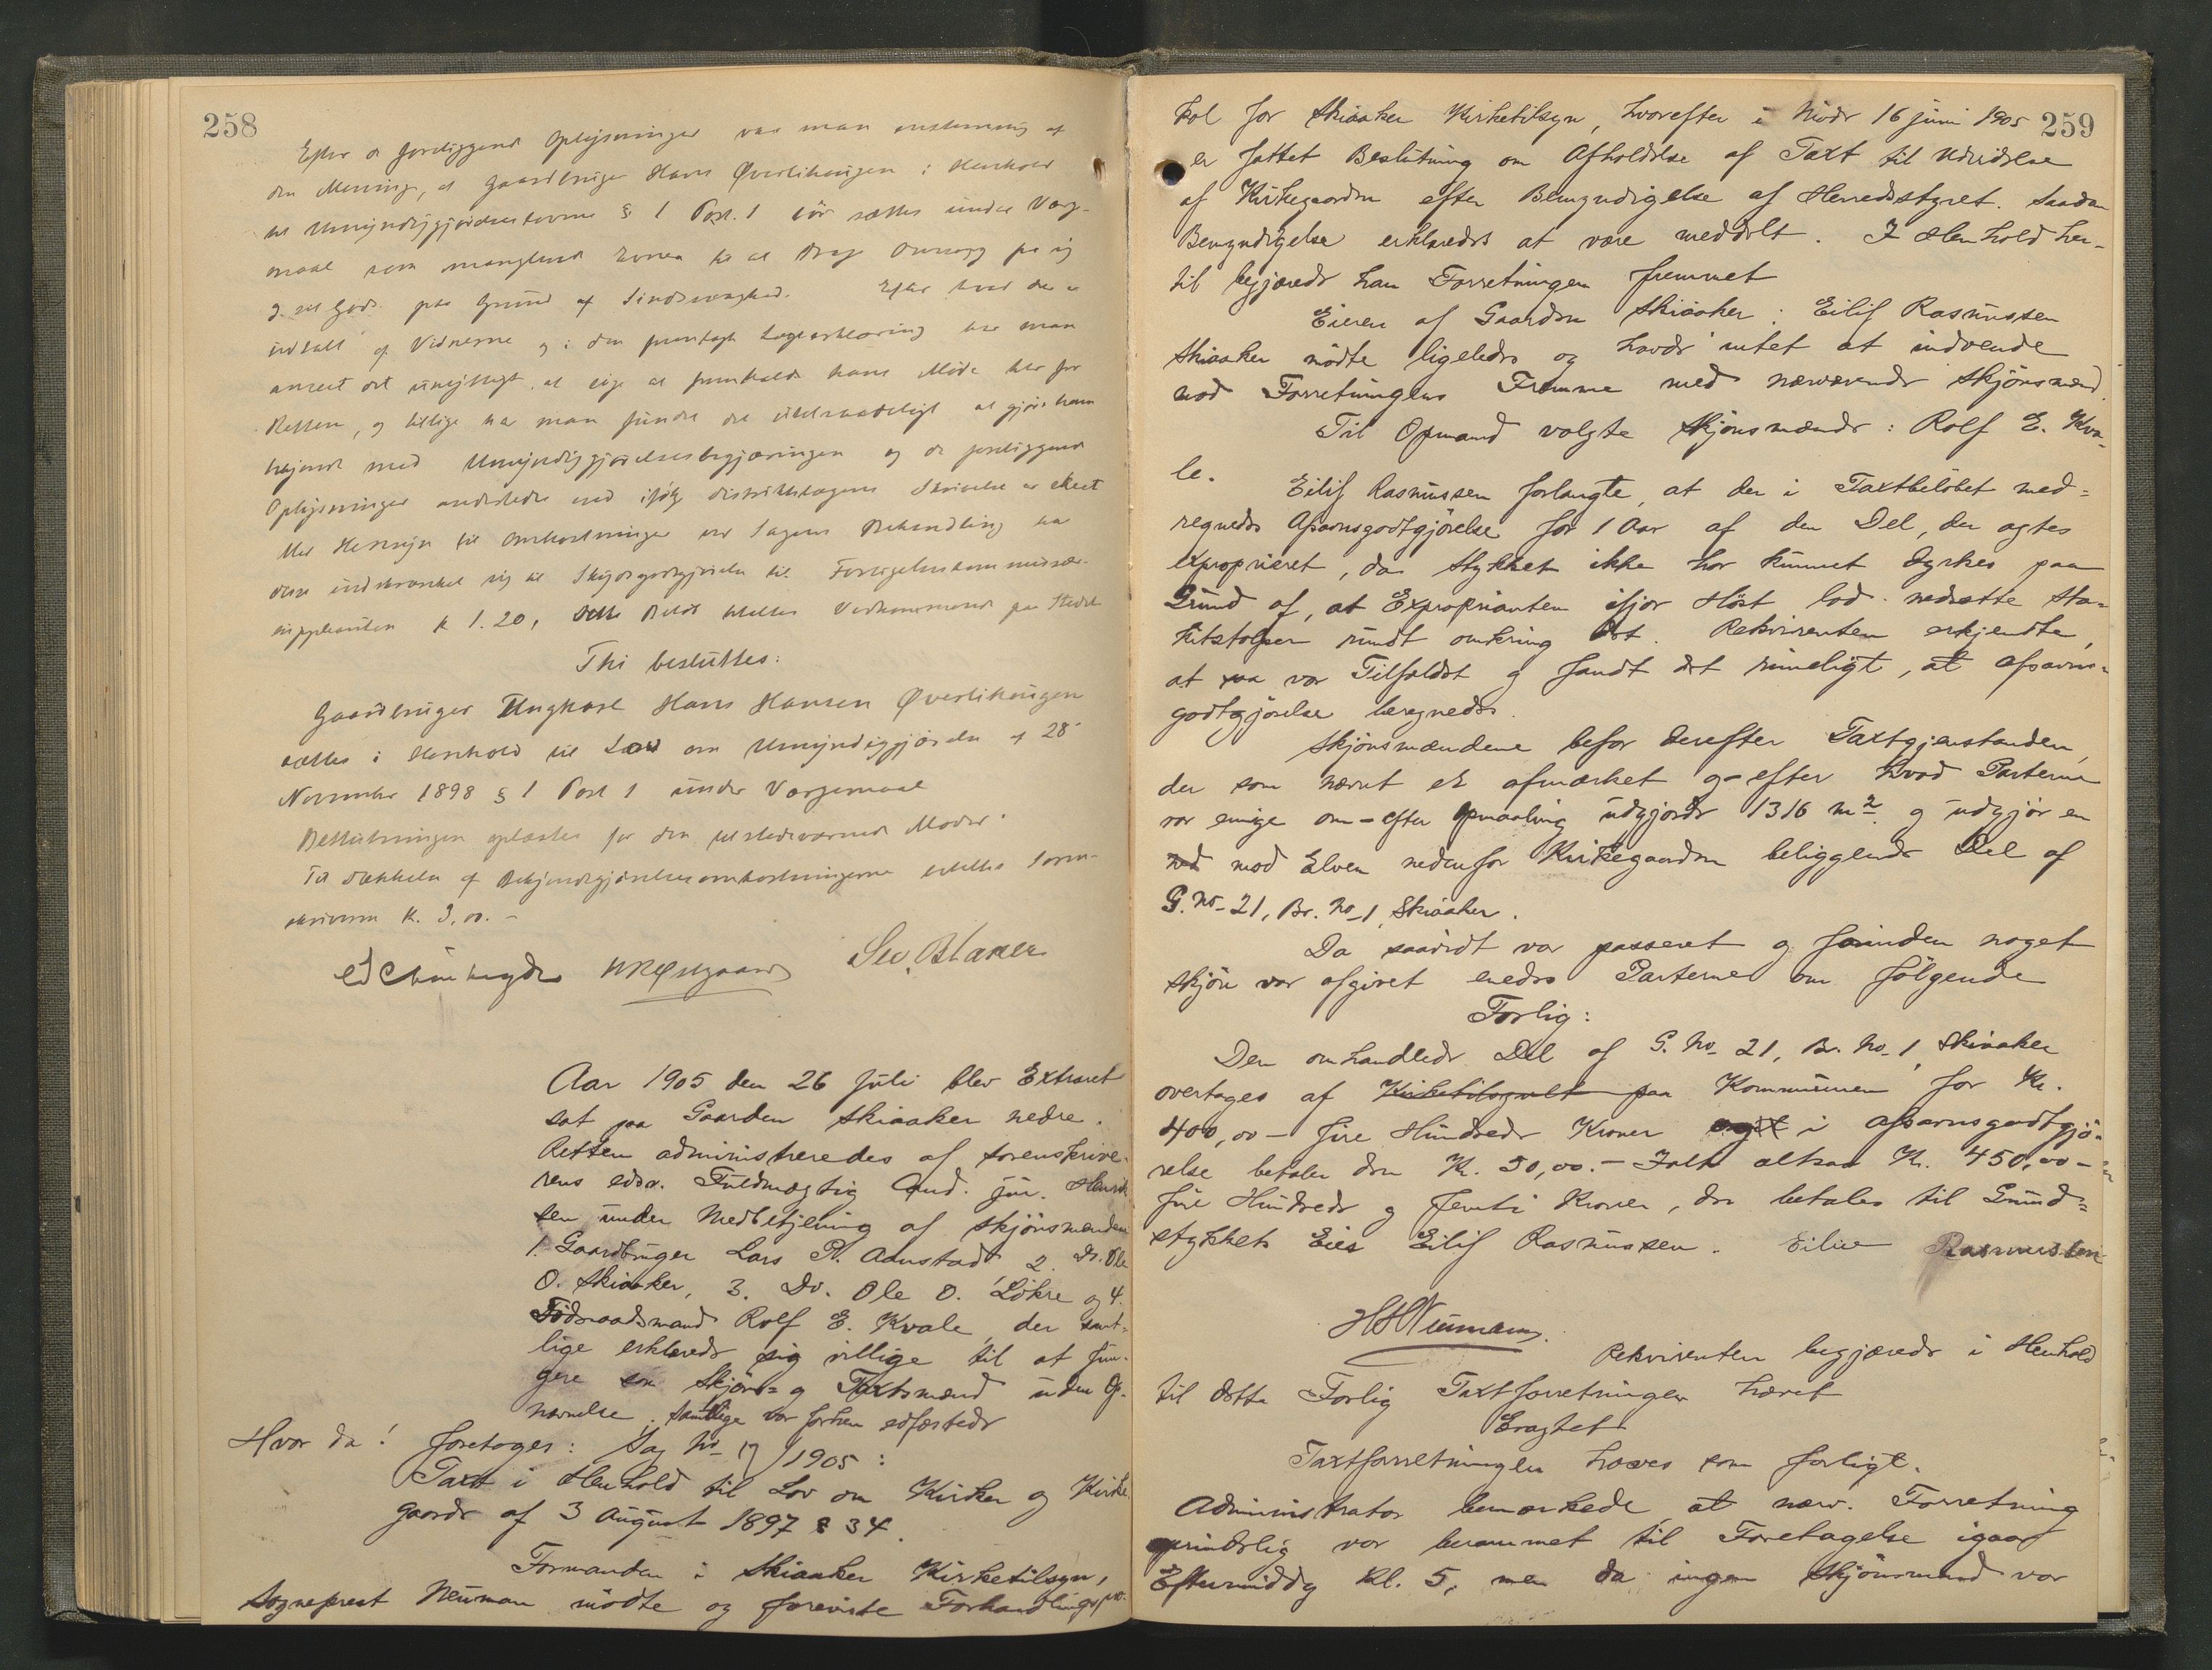 258
Efter de foreliggende Oplysninger var man enstemmig af
den Mening, at Gaardbruger Hans Øverlihaugen i Henhold
til Umyndiggjørelseslovens § 1 Post. 1 bör sættes under Værge-
maal som manglende Evnen til at drage Omsorg for sig
og sit Gods paa Grund af Sindssvaghed. Efter hvad der er
udtalt af Vidnerne og i den fremlagte Lægeerklæring har man
anseet det unyttigt at søge at fremkalde hans Møde her for
Retten, og tillige har man fundet det utilraadeligt at gjøre ham
bekjendt med Umyndiggjørelsesbegjæringen og de foreliggende
Oplysninger anderledes end ifølge Distriktslægens Skrivelse er skeet
Med Hensyn til Omkostninger ved Sagens Behandling har
disse indskrænket sig til Skydsgodtgjørelse til Forligelseskommissær-
suppleanten K 1.20, dette Beløb udbetaltes Vedkommende paa Stedet
Thi besluttes:
Gaardbruger Ungkarl Hans Hansen Øverlihaugen
sættes i Henhold til Lov om Umyndiggjørelse af 28
November 1898 § 1 Post 1 under Værgemaal
Beslutningen oplæstes for den tilstedeværende Moder.
Til Dækkelse af Bekjendtgjørelsesomkostningerne udbetaltes Soren-
skriveren K. 3,00.-
Sev. Blaker
Aar 1905 den 26 Juli blev Extraret
sat paa Gaarden Skiaaker nedre.
Retten administreredes af Sorenskrive-
rens edsv. Fuldmægtig Cand. jur. Henrik
sen under Medbetjening af Skjönsmændene
1. Gaardbruger Lars P. Aanstad, 2. Do. Ole
O. Skiaaker, 3. Do. Ole O. Lökre og 4.
Födraadsmand Rolf E. Kvale, der samt-
lige erklærede sig villige til at fun-
gere som Skjöns- og Taxtsmænd uden Op-
nævnelse. Samtlige var forhen edfæstede
Hvor da! foretoges: Sag No 17/1905:
Taxt i Henhold til Lov om Kirker og Kirke
gaarde af 3 August 1897 § 34.
Formanden i Skiaaker Kirketilsyn,
Sogneprest Neuman mödte og foreviste Forhandlingspro-
259
kol for Skiaaker Kirketilsyn, hvorefter i Möde 16 juni 1905
er fattet Beslutning om Afholdelse af Taxt til Udvidelse
af Kirkegaarden efter Bemyndigelse af Herredsstyret. Saadan
Bemyndigelse erklæredes at være meddelt. I Henhold her-
til begjærede han Forretningen fremmet
Eieren af Gaarden Skiaaker: Eilif Rasmussen
Skiaaker mödte ligeledes og havde intet at indvende
mod Forretningens Fremme med nærværende Skjönsmænd.
Til Opmand valgte Skjönsmændr: Rolf E. Kva-
le.
Eilif Rasmussen forlangte, at der i Taxtbelöbet med=
regnedes Afsavnsgodtgjörelse for 1 Aar af den Del, der agtes
exproprieret, da Stykket ikke har kunnet dyrkes paa
Grund af, at Exproprianten ifjor Höst lod nedsætte Sta-
kitstolper rundt omkring det. Rekvirenten erkjendte,
at saa var Tilfældet og fandt det rimeligt, at Afsavns-
godtgjörelse beregnedes.
Skjönsmændene befor derefter Taxtgjenstanden,
der som nævnt er afmærket og – efter hvad Parterne
var enige om – efter Opmaaling udgjorde 1316 m2 og udgjör en
ned mod Elven nedenfor Kirkegaarden beliggende Del af
G. No 21, Br. No 1, Skiaaker.
Da saavidt var passeret og forinden noget
Skjön var afgivet enedes Parterne om fölgende
Forlig:
Den omhandlede Del af G. No 21, Br. No 1 Skiaaker
overtages af Kirketilsynet paa Kommunen for Kr.
400,00 – fire Hundrede Kroner og i Afsavnsgodtgjö-
relse betaler den Kr. 50,00.– Ialt altsaa Kr. 450,00 –
fire Hundrede og femti Kroner, der betales til Grund=
stykkets Eier Eilif Rasmussen. Eilif Rasmussen
HHNeumann.
Rekvirenten begjærede i Henhold
til dette Forlig Taxtforretningen hævet
Eragtet
Taxtforretningen hæves som forligt.
Administrator bemærkede, at nærv. Forretning
oprindelig var berammet til Foretagelse igaar
Eftermiddg Kl. 5, men da ingen Skjönsmænd var